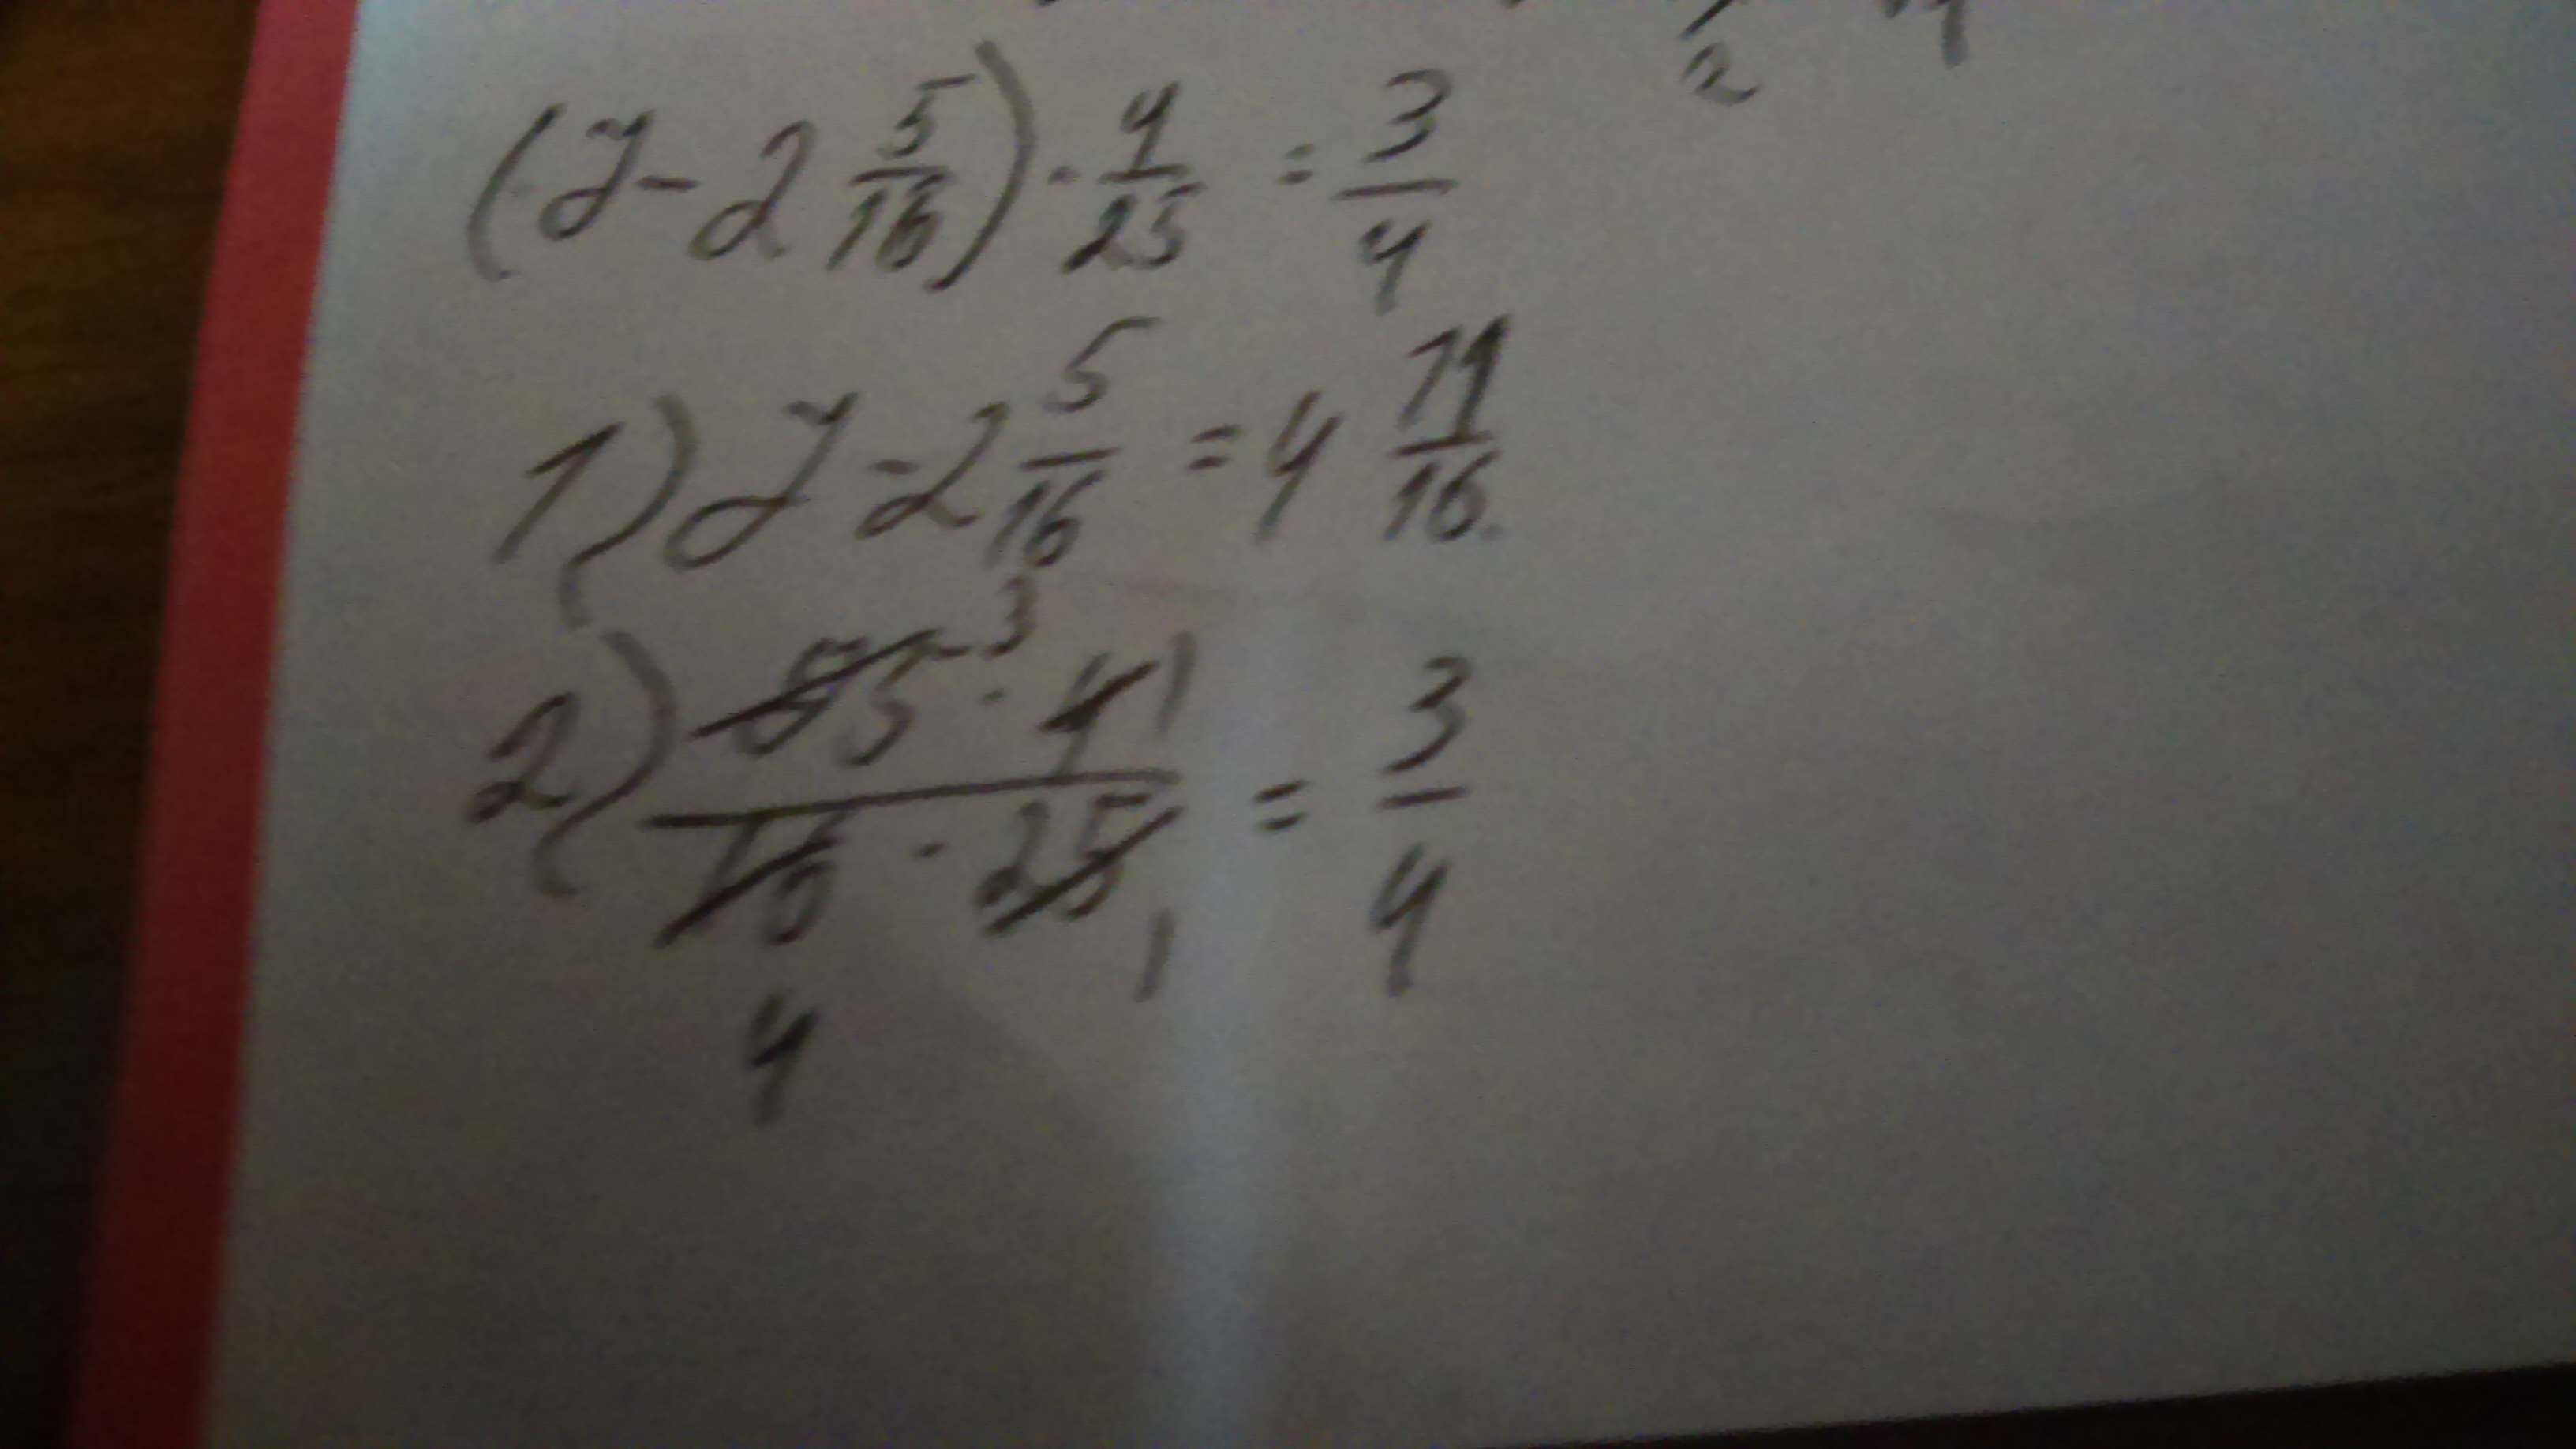 2 4
(7 - 2 5/16) · 4/25 = 3/4
1) 7 - 2 5/16 = 4 11/16
2) 75 3 · 4 1 / 16 4 · 25 1 = 3/4